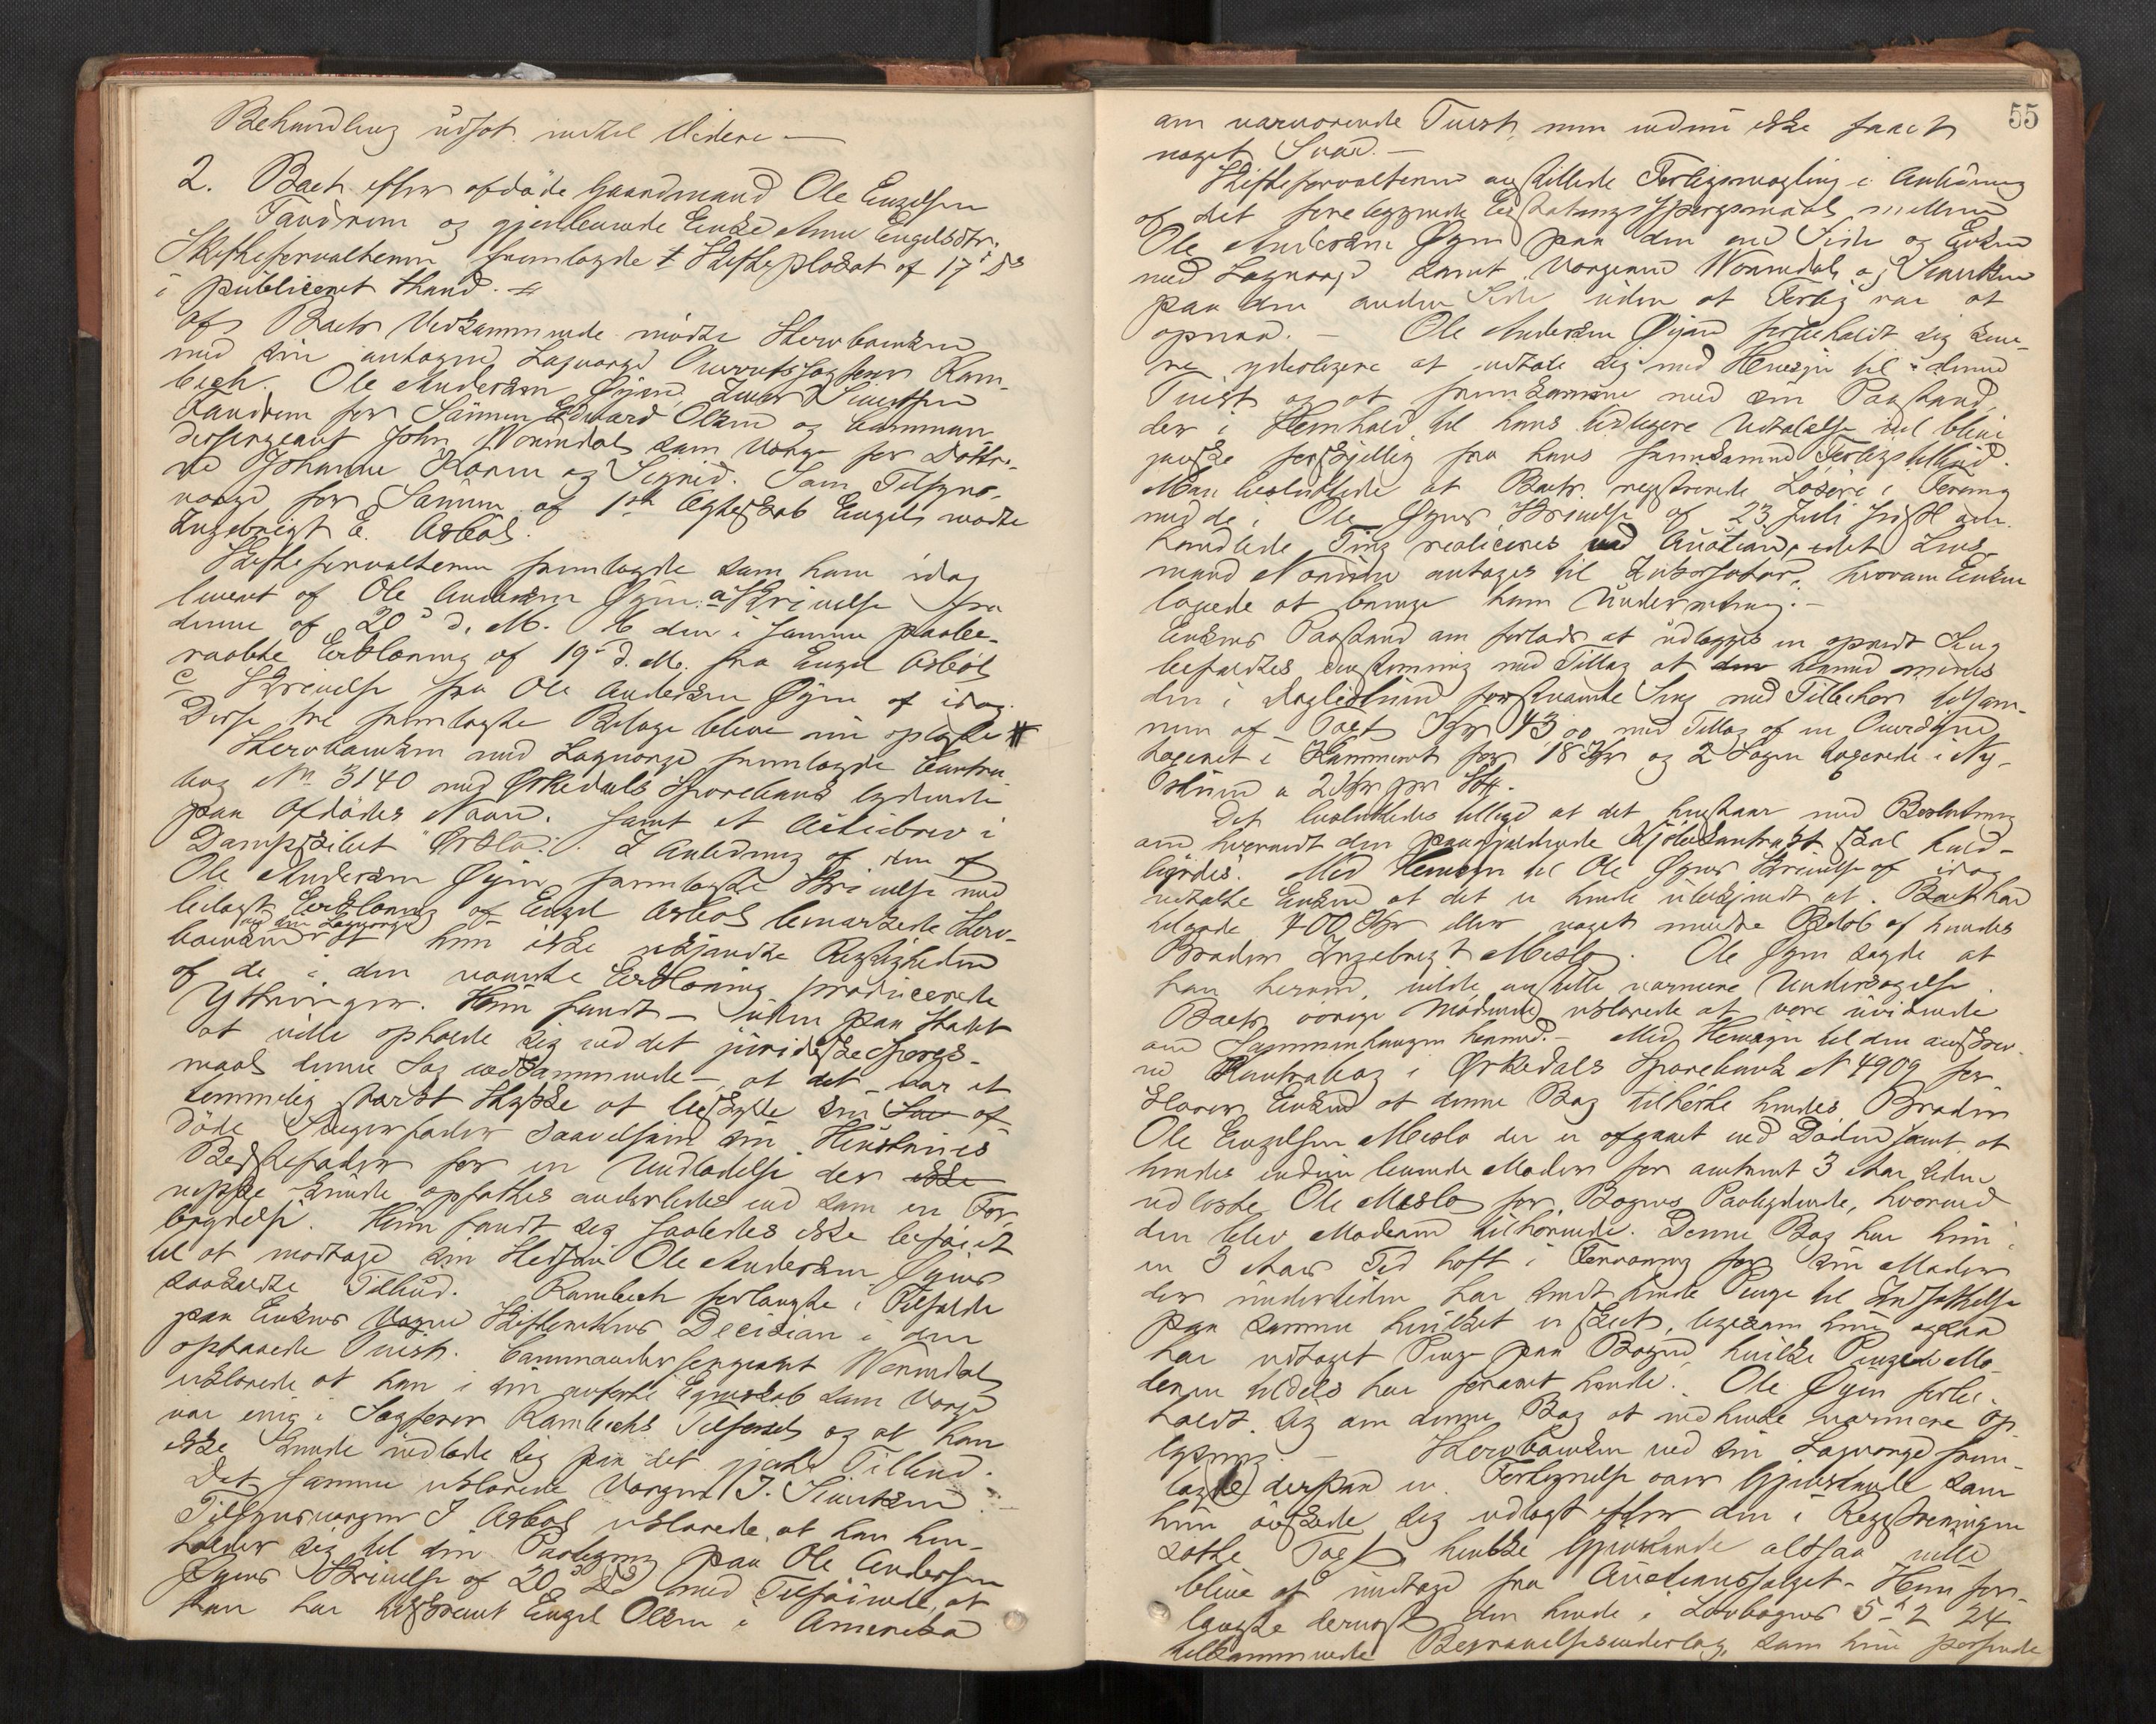 Behandling udsat indtil Videre —
2. Boet efter afdøde Gaardmand Ole Engelsen
og gjenlevende Enke Anne Engelsdtr.
Skifteforvalteren fremlagde # Skifteplakat af 17' Ds
i publiceret Stand. #
Af Boets Vedkommende mødte Stervboenken
med sin antagne Laugværge Overretssagfører Ram-
bech. Ole Andersen Øyen, Lars Sivertsen
for Sønnen Edvard Olsen og Comman-
dersergeant John Wormdal som Værge for Døttre-
ne Johanne Karen og Sigrid. Som Tilsyns-
værge for Sønnen af 1st Ægteskab Engel mødte
Ingebrigt E. Asbøl.
Skifteforvalteren fremlagde som ham idag
leveret af Ole Andersen Øyen: a Skrivelse fra
denne af 20' d. M. b den i samme paabe-
raabte Erklæring af 19' d. M. fra Engel Asbøl
c Skrivelse fra Ole Andersen Øyen af idag.
Disse tre fremlagte Bilage bleve nu oplæste #
Stervboenken med Laugværge fremlagde Contra-
bog No 3140 med Ørkedals Sparebank lydende
paa Afdødes Navn. Samt et Actiebrev i
Dampskibet "Orkla". I Anledning af den af
Ole Andersen Øyen fremlagte Skrivelse med
bilagt Erklæring af Engel Asbøl bemærkede Sterv-
ved sin Laugværge
boenken at hun ikke erkjendte Rigtigheden
af de i den nævnte Erklæring producerede
Ytringer. Hun fandt — uden paa Stedet
at ville opholde sig ved det juridiske Spørgs-
maal denne Sag vedkommende —, at det var et
temmelig stærkt Stykke at beskylde sin af-
døde Svigerfader saavelsom sin Hustrues
Bedstefader for en Undladelse der ikke
neppe kunde opfattes anderledes end som en For-
brydelse. Hun fandt sig saaledes ikke beføiet
til at modtage sin Stedsøn Ole Andersen Øyens
saakaldte Tilbud. Rambech forlangte i Tilfælde
paa Enkens Vegne Skifterettens Decision i den
opstaaede Tvist. Commandersergeant Wormdal
erklærede at han i sin anførte Egenskab som Værge
var enig i Sagfører Rambechs Tilførsel og at han
ikke kunde indlade sig paa det gjorte Tilbud.
Det samme erklærede Værgen J. Sivertsen.
Tilsynsværgen I Asbøl erklærede, at han hen-
holder sig til sin Paategning paa Ole Andersen
Øyens Skrivelse af 20' Ds med Tilføiende, at
han har tilskrevet Engel Olsen i Amerika
55
om nærværende Tvist, men endnu ikke faaet
noget Svar. —
Skifteforvalteren anstillede Forligsmægling i Anledning
af det foreliggende Erstatningsspørgsmaal mellem
Ole Andersen Øyen paa den ene Side og Enken
med Laugværge samt Værgerne Wormdal og Sivertsen
paa den anden Side uden at Forlig var at
opnaa. — Ole Andersen Øyen forbeholdt sig sene-
re yderligere at udtale sig med Hensyn til denne
Tvist og at fremkomme med sin Paastand,
der i Henhold til hans tidligere Udtalelse vil blive
ganske forskjellig fra hans fremkomne Forligstilbud.
Man besluttede at Boets registrerede Løsøre i Forening
med de i Ole Øyens Skrivelse af 23 Juli sidstl om-
handlede Ting realiseres ved Auction, idet Lens-
mand antages til Inkassator, hvorom Enken
lovede at bringe ham Underretning. —
Enkens Paastand om forlods at udlægges en opredt Seng
befandtes enstemmig med Tillæg at den hermed menes
den i Dagligstuen forefundne Seng med Tilbehør tilsam-
men af Taxt Kr 43,00 med Tillæg af en Overdyne
taxeret i Kammeret for 18 Kr og 2 Lagen taxerede i Ny-
stuen a 2 Kr pr Stk.
Det besluttedes tillige at det henstaar med Beslutning
om hvorvidt den paagjældende Kjøbekontrakt skal fuld-
byrdes. Med Hensyn til Ole Øyens Skrivelse af idag
udtalte Enken at det er hende ubekjendt at Boet har
tilgode 400 Kr eller noget mindre Beløb af hendes
Broder Ingebrigt Meslo. Ole Øyen sagde at
han herom vilde anstille nærmere Undersøgelse.
Boets øvrige Mødende erklærede at være uvidende
om Sammenhængen hermed. — Med Hensyn til den
Kontrabog i Ørkedals Sparebank No 4909 for-
klarer Enken at denne Bog tilhørte hendes Broder
Ole Engelsen Meslo der er afgaaet ved Døden samt at
hendes endnu levende Moder for omtrent 3 Aar siden
udløste Ole Meslo for Bogens Paalydende, hvorved
den blev Moderen tilhørende. Denne Bog har hun i
en 3 Aars Tid havt i Forvaring for sin Moder
der undertiden har sendt hende Penge til Indsættelse
paa samme hvilket er skeet, ligesom hun ogsaa
har udtaget Penge paa Bogen, hvilke Penge Mo-
deren tildels har foræret hende. Ole Øyen forbe-
holdt sig om denne Bog at indhente nærmere Op-
lysning. — Stervboenken ved sin Laugværge frem-
lagde derpaa en Fortegnelse over Gjenstande som
hun ønskede sig udlagt efter den i Registreringen
satte Taxt, hvilke Gjenstande altsaa ville
blive at undtage fra Auctionssalget. Hun for-
langte dernæst den hende i Lovbogens 5-2-24
tilkommende Begravelsesvederlag, som hun formente